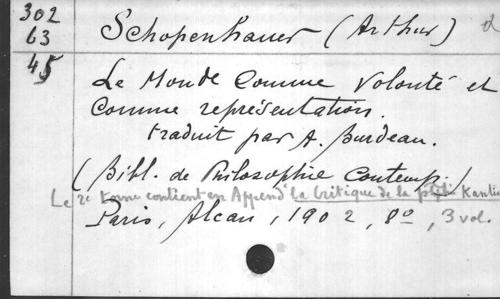 302
63
45
Schopenhauer (Arthur)
Le Monde Comme Volonté et
Comme représentation.
traduit par A. Burdeau.
(Bibl. de Philosophie Contemp.)
Le 2e tome contient en Append la Critique de la Kantie
Paris, Alcan, 1902, 8º, 3 vol.